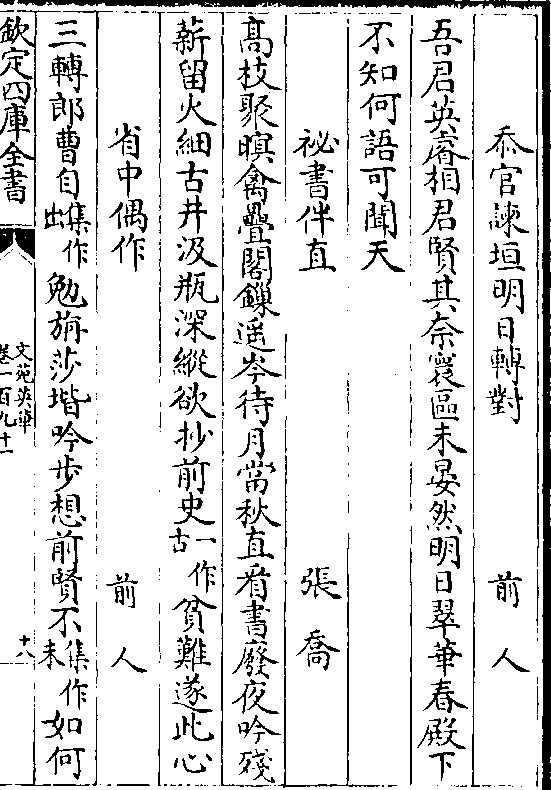 忝官諫垣明日轉對 前人
吾君英睿相君賢其奈寰區未晏然明日翠華春殿下
不知何語可聞天
祕書伴直 張喬
髙枝聚暝禽疊閣鏁遥岑待月當秋直看書廢夜吟殘
薪留火細古井汲瓶深縱欲抄前史一作古貧難遂此心
省中偶作 前人
三轉郎曹自集作出勉旃莎堦吟步想前賢不集作未如何
欽定四庫全書
文苑英華
卷一百九十一
十八